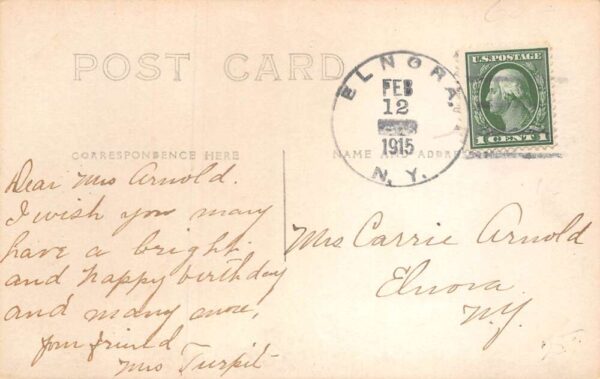 POST CARD
ELNORA,
FEB
12
1915
N. Y.
U.S. POSTAGE
1 CENT 1
CORRESPONDENCE HERE
NAME AND ADDRESS
Dear Mrs Arnold.
I wish you many
have a bright
and happy birthday
and many more,
your friend
Mrs Turpit
Mrs Carrie Arnold
Elnora
NY.